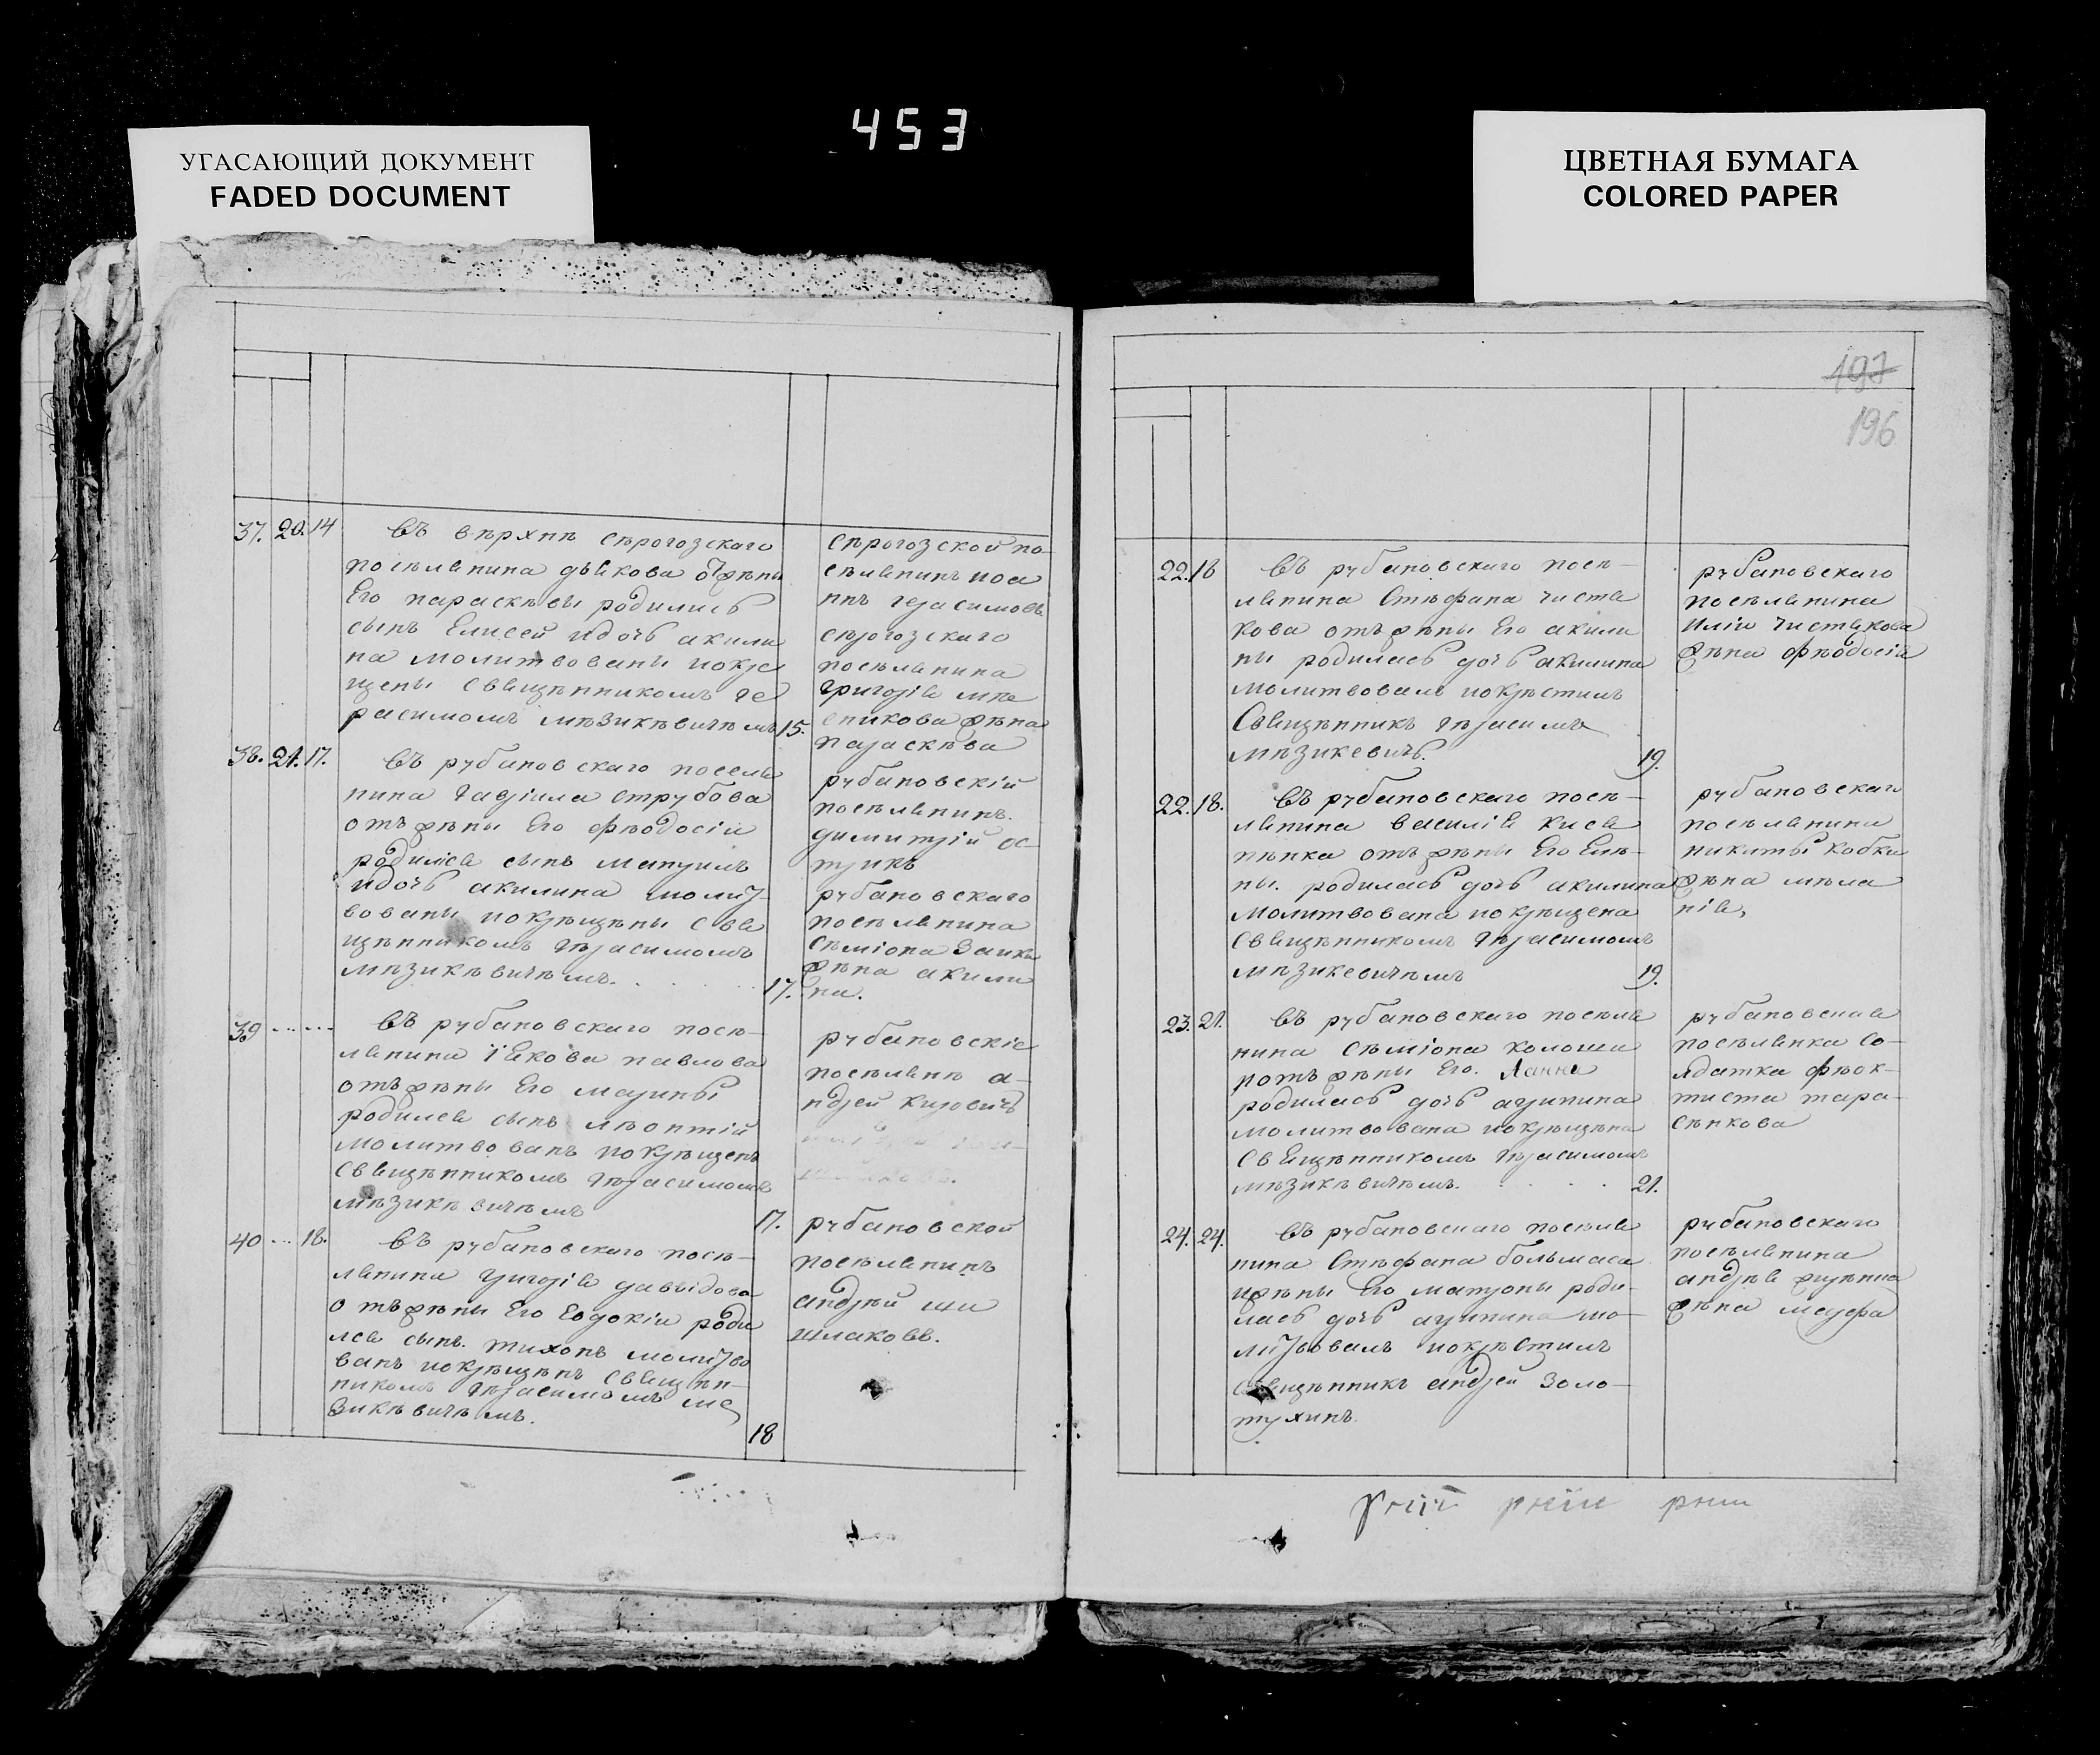 453
УГАСАЮЩИЙ ДОКУМЕНТ
FADED DOCUMENT
ЦВЕТНАЯ БУМАГА
COLORED PAPER
37. 20. 14
въ вѣрхнѣ сѣрогозскаго
посѣлянина
его параскѣвы родились
сынъ Елисей идочь акили
на молитвованы покре
щены свящѣнникомъ ге
расимомъ мѣзикѣвичѣмъ 15.
сѣрогозской по-
сѣлянинъ иоа
ннъ герасимовъ
сѣрогозскаго
посѣлянина
григорія
жѣна
параскѣва
38. 21. 17.
въ рубановскаго поселя
нина гавріила струбова
отъ жѣны его фѣодосіи
родился сынъ мануилъ
идочь акилина молит
вованы покрѣщѣны свя
щѣнникомъ гѣрасимомъ
мѣзикѣвичѣмъ. 17.
рубановскій
посѣлянинъ.
димитрій ос-
трикъ
рубановскаго
посѣлянина
сѣміона заики
жѣна акили
на.
39
въ рубановскаго посѣ-
лянина іякова павлова
отъ жѣны его марины
родился сынъ лѣонтій
молитвованъ покрѣщенъ
свящѣнникомъ гѣрасимомъ
мѣзикѣвичѣмъ 17.
рубановскіе
посѣлянѣ а-
ндрей
40 18.
въ рубановскаго посѣ-
лянина григорія давыдова
отъ жѣны его евдокіи роди
лся сынъ. тихонъ молитво
ванъ покрѣщѣнъ свящѣн-
никомъ гѣрасимомъ ме
зикѣвичѣмъ. 18
рубановской
посѣлянинъ
андрѣй ши
шлаковъ.
197
196
22. 18
въ рубановскаго посѣ-
лянина стѣфана чистя
кова отъ жѣны его акили
ны родилась дочь акилина
молитвовалъ покрѣстилъ
свящѣнникъ гѣрасимъ
мѣзикевичъ. 19.
рубановскаго
посѣлянина
иліи чистякова
жѣна фѣодосія
22. 18.
въ рубановскаго посѣ-
лянина василія кися
пѣнка отъ жѣны его елѣ-
ны. родилась дочь акилина
молитвована покрѣщена
свящѣнникомъ гѣрасимомъ
мѣзикевичѣмъ 19.
рубановскаго
посѣлянина
никиты кобки
жѣна мѣла
нія,
23. 21.
въ рубановскаго посѣля
нина сѣміона
отъ жѣны его.
родилась дочь агрипина
молитвована покрѣщѣна
свящѣнникомъ гѣрасимомъ
мѣзикѣвичѣмъ. 21.
рубановская
посѣлянка со-
лдатка фѣок-
тиста тара-
сѣнкова
24. 24.
въ рубановскаго посѣля
нина стѣфана больмаса
ижѣны его матроны роди-
лась дочь агрипина мо-
литвовалъ покрѣстилъ
свящѣнникъ андрей золо-
тухинъ.
рубановскаго
посѣлянина
андрѣя
жѣна марфа